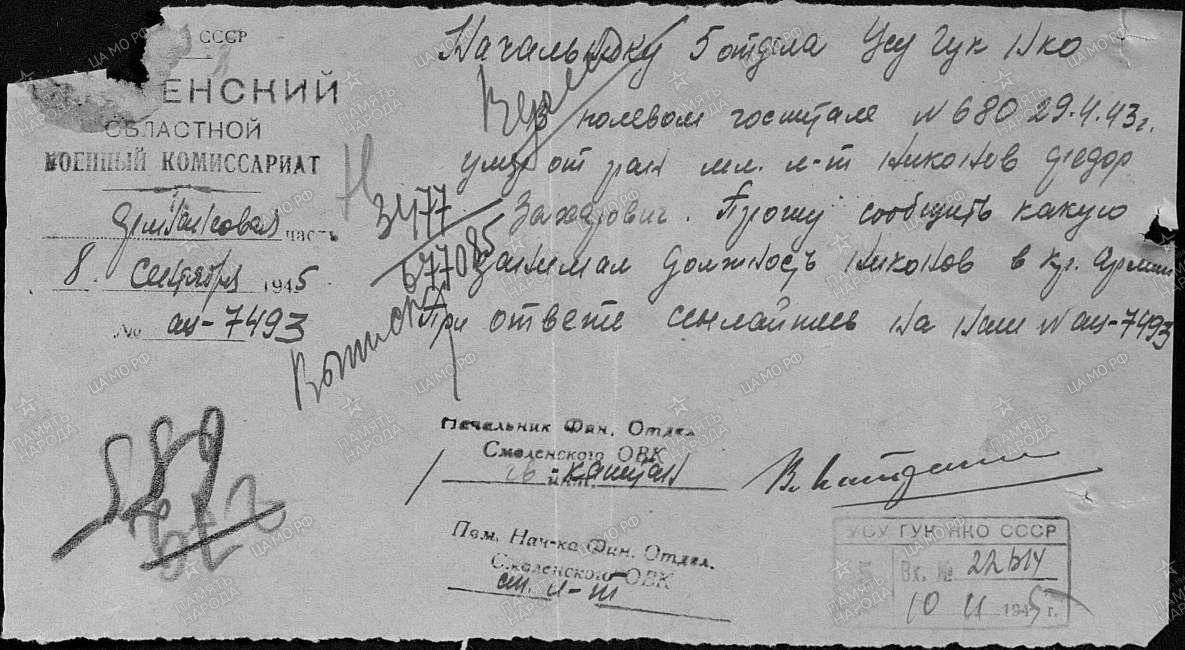 СССР
ЕНСКИЙ
ОБЛАСТНОЙ
ВОЕННЫЙ КОМИССАРИАТ
Финансовая часть
8. Сентября 1945
№ ац-7493
Начальнику 5 отдела Усу Гук Нко
В полевом госпитале N 680 29.4.43г.
умер от ран мл. л-т Никонов Федор
Захарович. Прошу сообщить какую
занимал должность Никонов в кр. Армии
При ответе сылайтесь на наш N ац-7493
Н
3477
677085
Начальник Фин. Отдел.
Смоленского ОВК
капитан
Пом. Нач-ка Фин. Отдел.
Смоленского ОВК
ст. л-т
УСУ ГУК НКО СССР
Вх. №
10 1945 г.
ПАМЯТЬ НАРОДА
ЦАМО.РФ